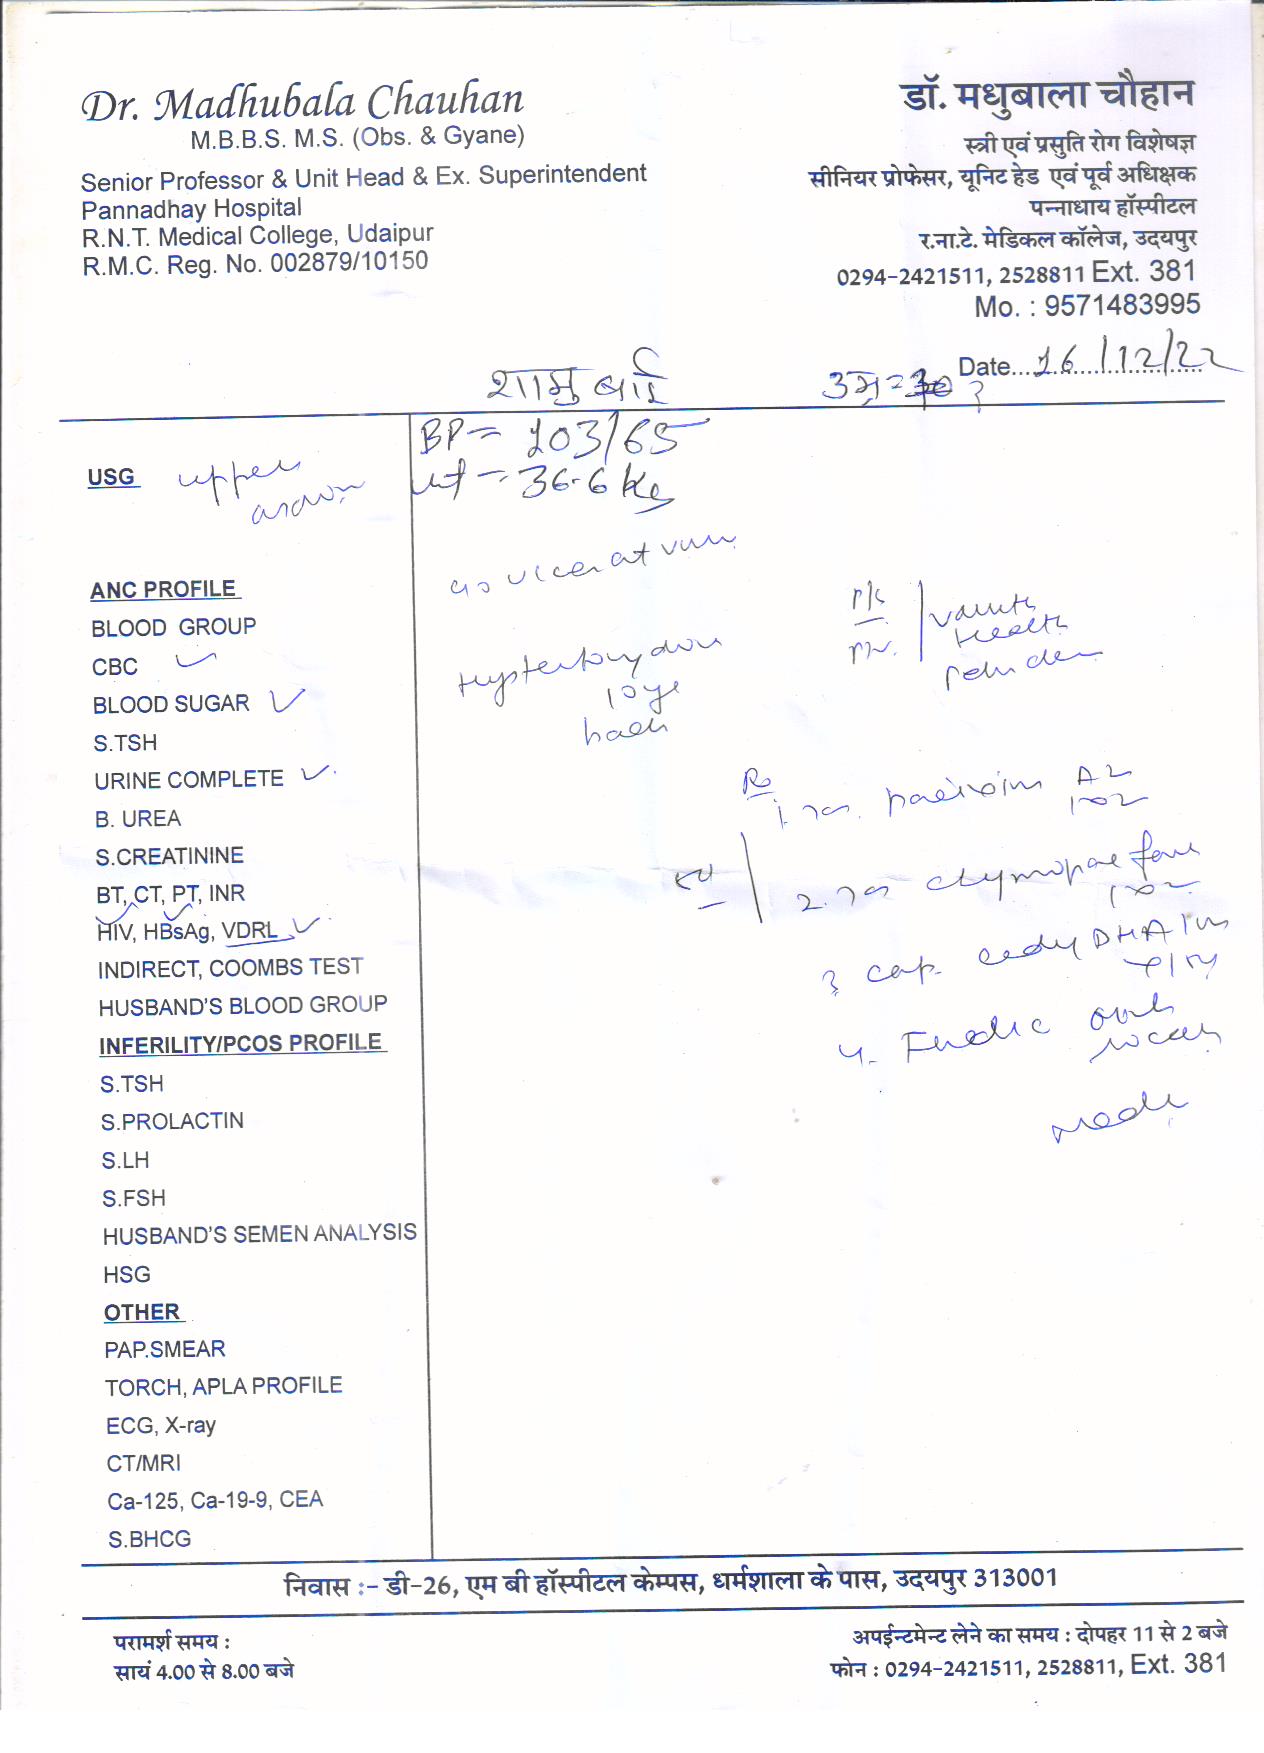 Dr. Madhubala Chauhan
M.B.B.S. M.S. (Obs. & Gyane)
Senior Professor & Unit Head & Ex. Superintendent
Pannadhay Hospital
R.N.T. Medical College, Udaipur
R.M.C. Reg. No. 002879/10150
डॉ. मधुबाला चौहान
स्त्री एवं प्रसुति रोग विशेषज्ञ
सीनियर प्रोफेसर, यूनिट हेड एवं पूर्व अधिक्षक
पन्नाधाय हॉस्पीटल
र.ना.टे. मेडिकल कॉलेज, उदयपुर
0294-2421511, 2528811 Ext. 381
Mo. : 9571483995
Date... 16/12/22
शामु बाई उम्र =
BP = 103/65
wt = 36.6 Kg
USG upper
ulcer at
10
P/S
health
Rx
1.
2.
3 cap. DHA
4.
ANC PROFILE
BLOOD GROUP
CBC
BLOOD SUGAR
S.TSH
URINE COMPLETE
B. UREA
S.CREATININE
BT, CT, PT, INR
HIV, HBsAg, VDRL
INDIRECT, COOMBS TEST
HUSBAND'S BLOOD GROUP
INFERILITY/PCOS PROFILE
S.TSH
S.PROLACTIN
S.LH
S.FSH
HUSBAND'S SEMEN ANALYSIS
HSG
OTHER
PAP.SMEAR
TORCH, APLA PROFILE
ECG, X-ray
CT/MRI
Ca-125, Ca-19-9, CEA
S.BHCG
निवास :- डी-26, एम बी हॉस्पीटल केम्पस, धर्मशाला के पास, उदयपुर 313001
परामर्श समय :
सायं 4.00 से 8.00 बजे
अपईन्टमेन्ट लेने का समय : दोपहर 11 से 2 बजे
फोन : 0294-2421511, 2528811, Ext. 381